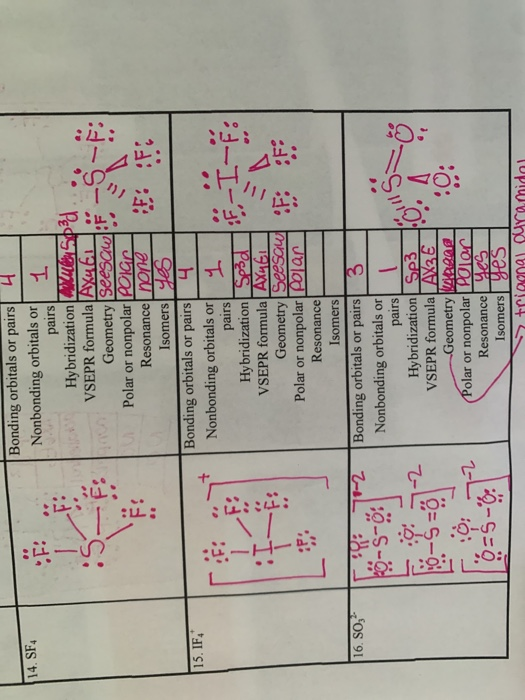 14. SF4
Bonding orbitals or pairs
4
Nonbonding orbitals or pairs
1
Hybridization
sp3d
VSEPR formula
AX4E1
Geometry
seesaw
Polar or nonpolar
polar
Resonance
none
Isomers
yes
:F: F: S F: F:
:F-S-F: :F: :F:
15. IF4+
Bonding orbitals or pairs
4
Nonbonding orbitals or pairs
1
Hybridization
sp3d
VSEPR formula
AX4E1
Geometry
seesaw
Polar or nonpolar
polar
Resonance
Isomers
[:F: F: I F: :F:]+
:F-I-F: :F: :F:
16. SO3 2-
Bonding orbitals or pairs
3
Nonbonding orbitals or pairs
1
Hybridization
sp3
VSEPR formula
AX3E
Geometry
Polar or nonpolar
polar
Resonance
yes
Isomers
yes
[:O: :O-S-O:]-2
[:O: :O-S=O]-2
[:O: O=S-O:]-2
:O S=O :O:
→ trigonal pyramidal